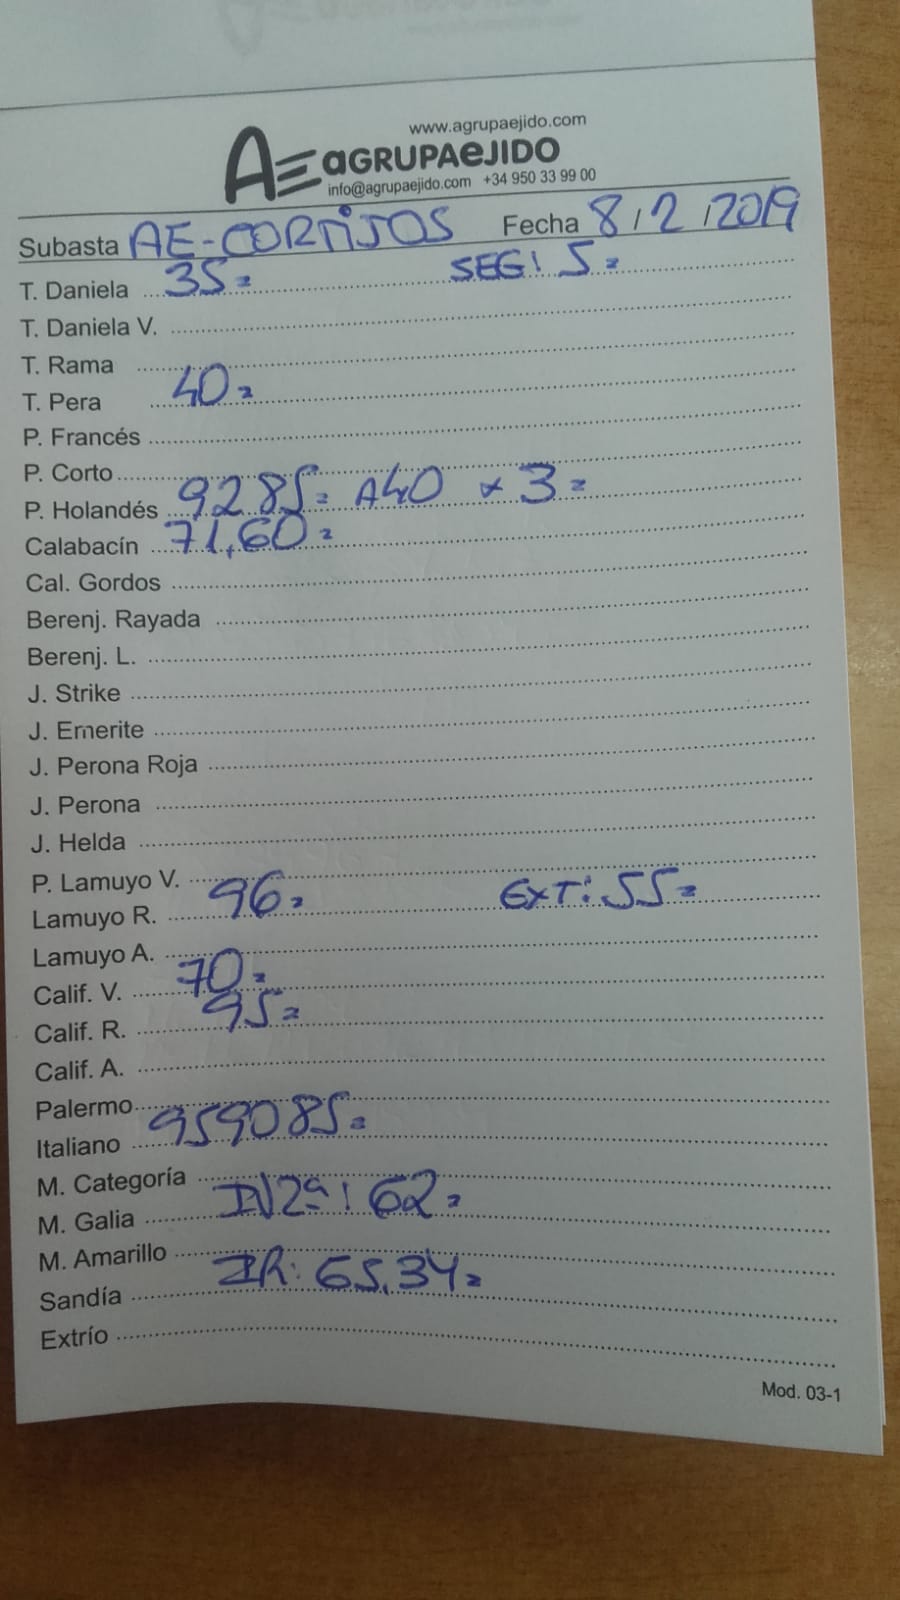 www.agrupaejido.com
AE aGRUPAeJIDO
info@agrupaejido.com +34 950 33 99 00
Subasta AE-CORTIJOS Fecha 8/2/2019
T. Daniela 35= SEG: 5=
T. Daniela V.
T. Rama
T. Pera 40=
P. Francés
P. Corto
P. Holandés 9285= A40 x 3=
Calabacín 71,60=
Cal. Gordos
Berenj. Rayada
Berenj. L.
J. Strike
J. Emerite
J. Perona Roja
J. Perona
J. Helda
P. Lamuyo V.
Lamuyo R. 96= EXT: 55=
Lamuyo A.
Calif. V. 70=
Calif. R. 95=
Calif. A.
Palermo
Italiano 959085=
M. Categoría
M. Galia IV2ª: 62=
M. Amarillo
Sandía IR: 65,34=
Extrío
Mod. 03-1